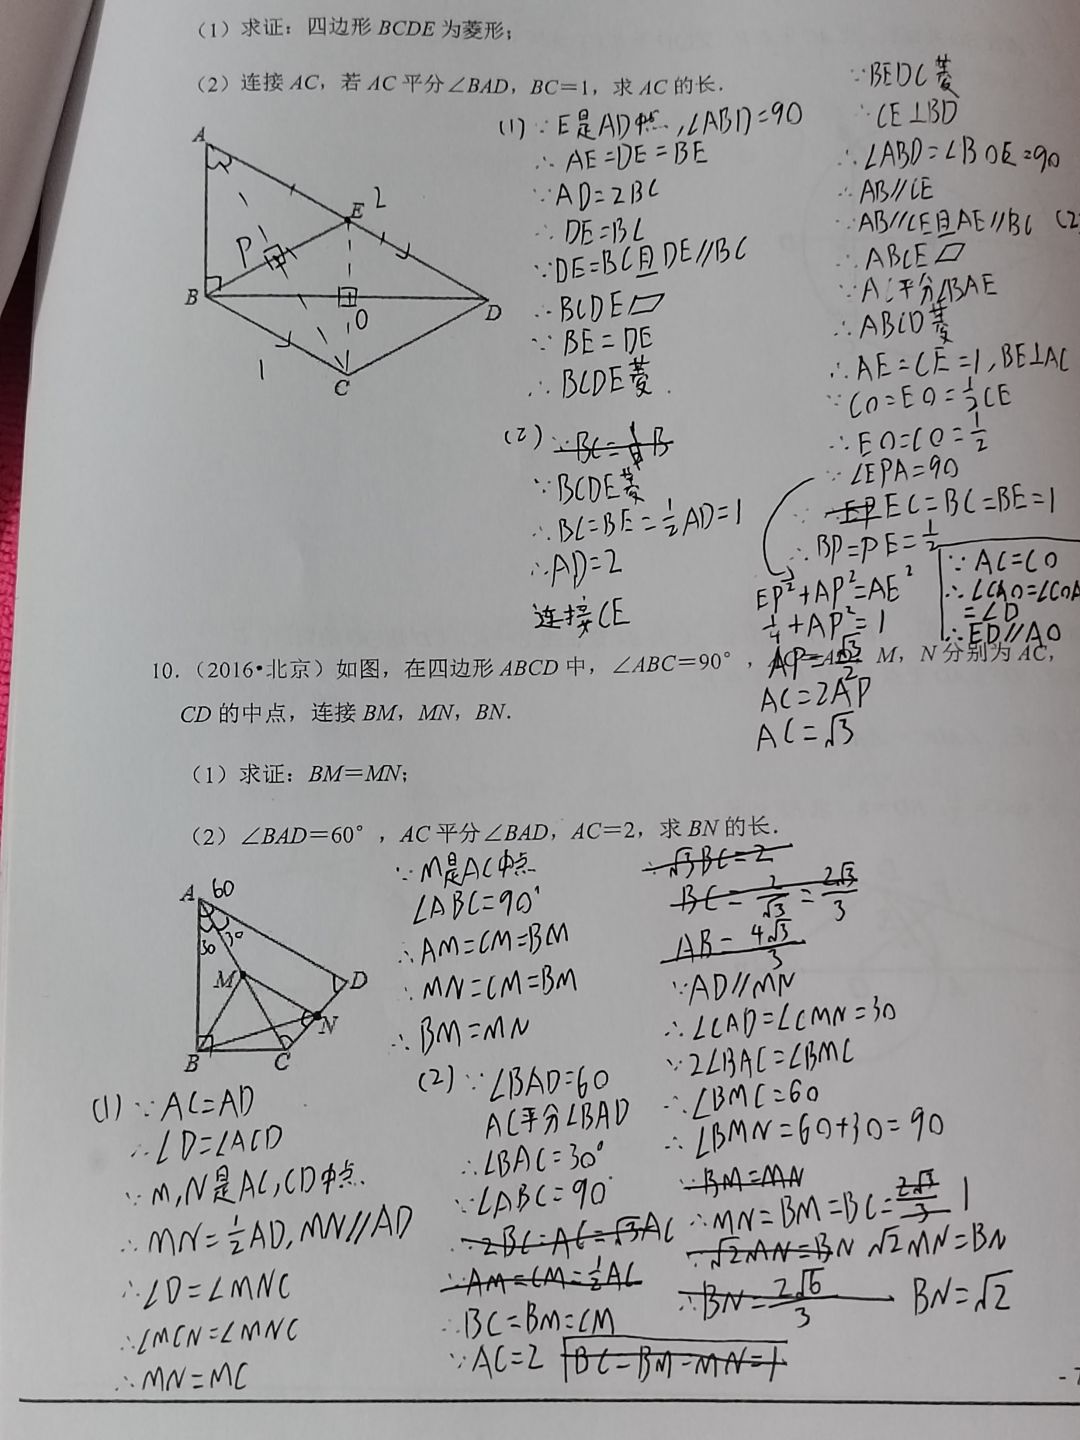 (1) 求证：四边形 BCDE 为菱形；
(2) 连接 AC，若 AC 平分∠BAD，BC=1，求 AC 的长．
A
B
C
D
E
2
P
O
1
(1) ∵E是AD中点,∠ABD=90
∴AE=DE=BE
∵AD=2BC
∴DE=BC
∵DE=BC且DE//BC
∴BCDE▱
∵BE=DE
∴BCDE菱.
(2)
∵BCDE菱
∴BC=BE=½AD=1
∴AD=2
连接CE
∵BEDC菱
∴CE⊥BD
∴∠ABD=∠BOE=90
∴AB//CE
∵AB//CE且AE//BC
∴ABCE▱
∵AC平分∠BAE
∴ABCD菱
∴AE=CE=1,BE⊥AC
∵CO=EO=½CE
∴EO=CO=½
∵∠EPA=90
∵EC=BC=BE=1
∴BP=PE=½
EP²+AP²=AE²
¼+AP²=1
AP=√3/2
AC=2AP
AC=√3
∵AC=CO
∴∠CAO=∠COA
=∠D
∴ED//AO
10．（2016•北京）如图，在四边形 ABCD 中，∠ABC=90°， M，N 分别为 AC，
CD 的中点，连接 BM，MN，BN．
(1) 求证：BM=MN；
(2) ∠BAD=60°，AC 平分∠BAD，AC=2，求 BN 的长．
A
60
30
30
M
D
N
B
C
(1) ∵AC=AD
∴∠D=∠ACD
∵M,N是AC,CD中点.
∴MN=½AD,MN//AD
∴∠D=∠MNC
∴∠MCN=∠MNC
∴MN=MC
∵M是AC中点
∠ABC=90°
∴AM=CM=BM
∴MN=CM=BM
∴BM=MN
(2) ∵∠BAD=60
AC平分∠BAD
∴∠BAC=30°
∵∠ABC=90°
∵2BC=AC=√3AC
∵AM=CM=½AC
∴BC=BM=CM
∵AC=2 BC=BM=MN=1
∵√3BC=2
BC=2/√3=2√3/3
AB=4√3/3
∵AD//MN
∴∠CAD=∠CMN=30
∵2∠BAC=∠BMC
∴∠BMC=60
∴∠BMN=60+30=90
∵BM=MN
∴MN=BM=BC=2√3/3 1
∵√2MN=BN √2MN=BN
∴BN=2√6/3 BN=√2